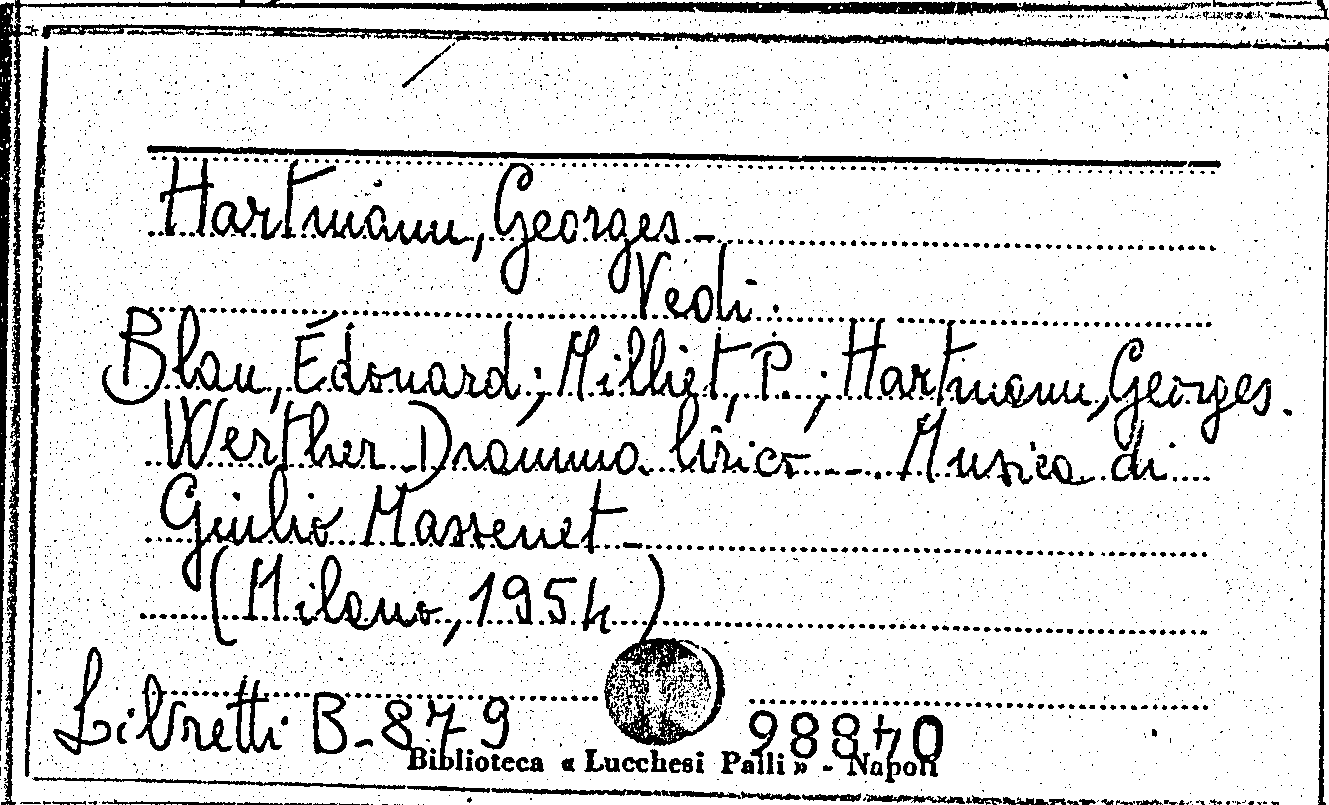 Hartmann, Georges -
Vedi:
Blau, Édouard; Milliet, P.; Hartmann, Georges.
Werther Dramma lirico - - . Musica di
Giulio Massenet -
(Milano, 1954)
Libretti B-879 98840
Biblioteca « Lucchesi Palli » - Napoli